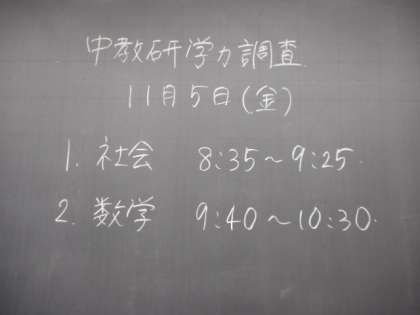 中教研学力調査
11月5日(金)
1. 社会 8:35~9:25.
2. 数学 9:40~10:30.